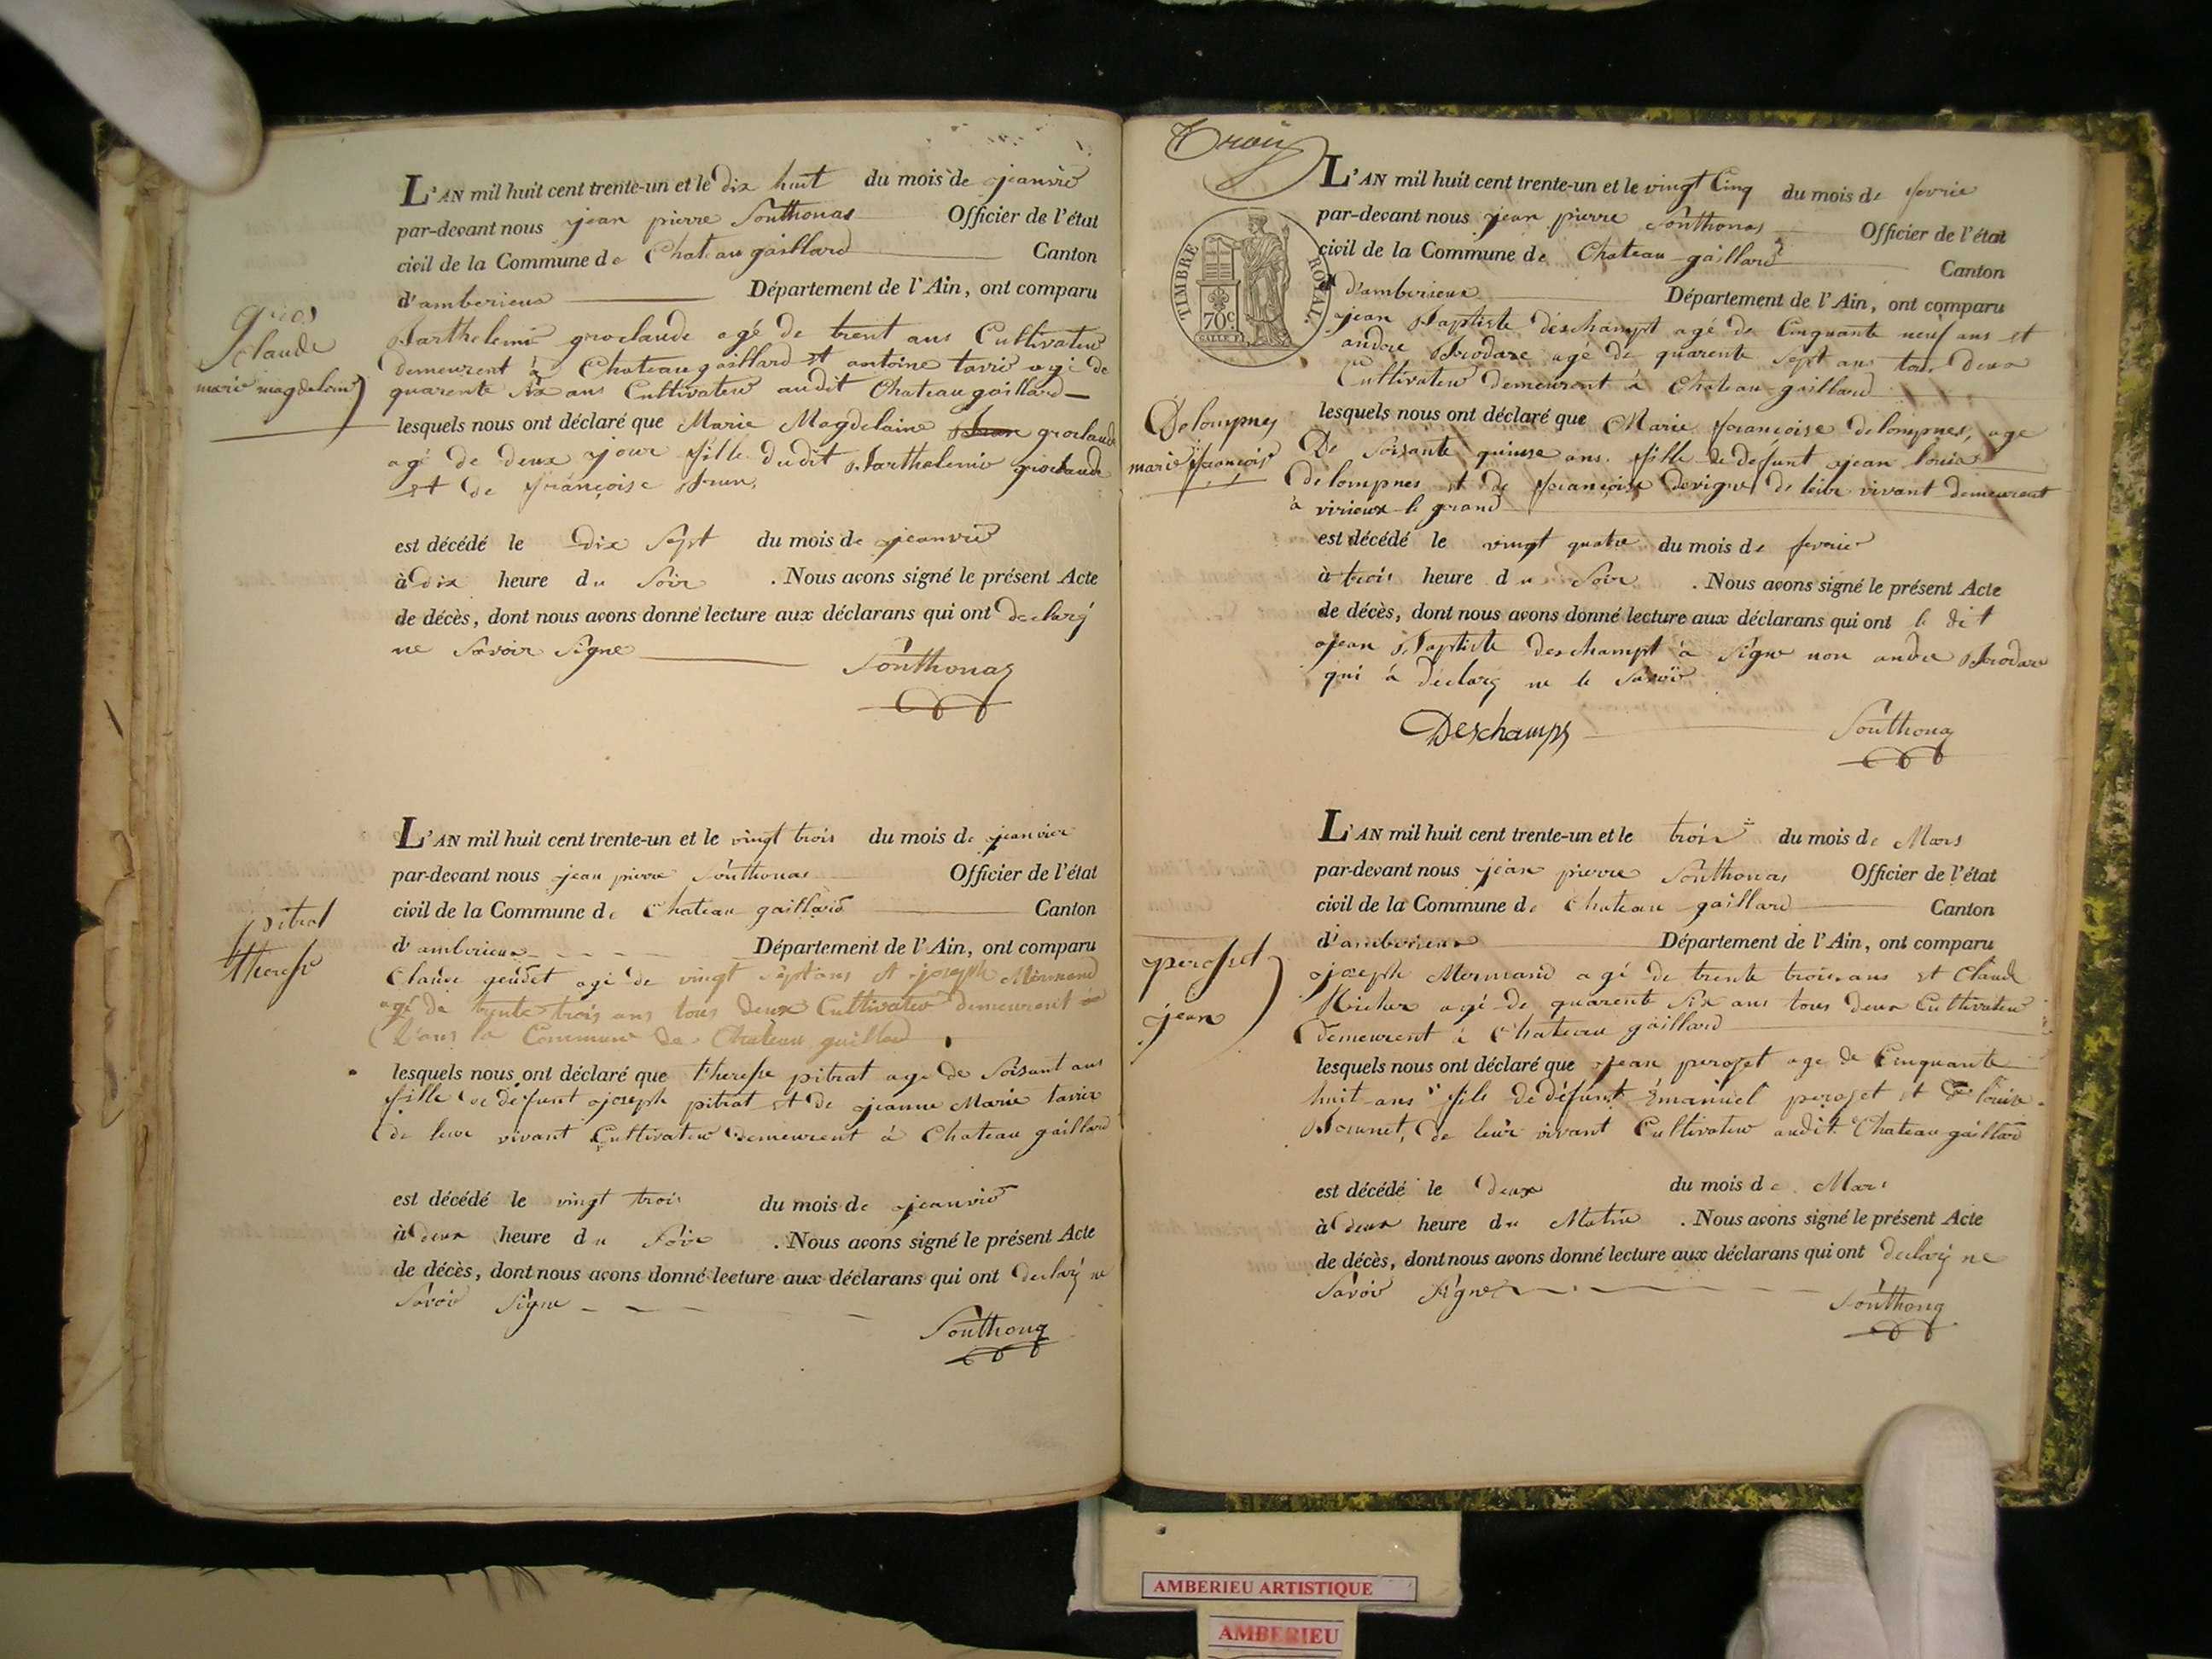 L'AN mil huit cent trente-un et le dix huit du mois de jeanvié
par-devant nous jean pierre Sonthonas Officier de l'état
civil de la Commune de Chateau gaillard Canton
d'amberieux Département de l'Ain, ont comparu
gros
claude
marie magdeleine
Barthelemie groclaude agé de trent ans Cultivateur
demeurent à Chateau gaillard et antoine tavié agé de
quarente six ans Cultivateur audit Chateau gaillard
lesquels nous ont déclaré que Marie Magdelaine groclaude
agé de deux jour fille dudit Barthelemie groclaude
et de françoise Brun
est décédé le Dix Sept du mois de jeanvié
à dix heure du Soir . Nous avons signé le présent Acte
de décès, dont nous avons donné lecture aux déclarans qui ont declaré
ne Savoir Signe
Sonthonas
L'AN mil huit cent trente-un et le vingt trois du mois de jeanvier
par-devant nous jean pierre Sonthonas Officier de l'état
civil de la Commune de Chateau gaillard Canton
d'amberieux Département de l'Ain, ont comparu
pitrat
therese
Claude geudet agé de vingt sept ans et joseph Mermand
agé de trente trois ans tous deux Cultivateur demeurent
Dans la Commune de Chateau gaillard
lesquels nous ont déclaré que therese pitrat age de Soisant ans
fille de défunt joseph pitrat et de jeanne Marie tavier
de leur vivant Cultivateur demeurent à Chateau gaillard
est décédé le vingt trois du mois de jeanvié
à deux heure du Soir . Nous avons signé le présent Acte
de décès, dont nous avons donné lecture aux déclarans qui ont declaré ne
Savoir Signe
Sonthonas
Trois
TIMBRE ROYAL
70c
L'AN mil huit cent trente-un et le vingt Cinq du mois de fevrie
par-devant nous jean pierre Sonthonas Officier de l'état
civil de la Commune de Chateau gaillard Canton
d'amberieux Département de l'Ain, ont comparu
jean Baptiste deschampt agé de Cinquante neuf ans et
andre Brodare agé de quarente Sept ans tous deux
Cultivateur demeurent à Chateau gaillard
Delompnes
marie françoise
lesquels nous ont déclaré que Marie françoise delompnes, age
De Soisante quinse ans fille de défunt jean louis
delompnes et de françoise devigne de leur vivant demeurent
a virieux le grand
est décédé le vingt quatre du mois de fevrier
à trois heure du Soir . Nous avons signé le présent Acte
de décès, dont nous avons donné lecture aux déclarans qui ont le dit
jean Baptiste deschampt à Signe non andre Brodare
qui à declaré ne le Savoir
Deschamps Sonthonas
L'AN mil huit cent trente-un et le trois du mois de Mars
par-devant nous jean pierre Sonthonas Officier de l'état
civil de la Commune de Chateau gaillard Canton
d'amberieux Département de l'Ain, ont comparu
perosset
jean
joseph Mermand agé de trente trois ans et Claude
Richer agé de quarente Six ans tous deux Cultivateur
demeurent à Chateau gaillard
lesquels nous ont déclaré que jean peroset age de Cinquante
huit ans fils de défunt Émanuel peroset et de louise
Bonnet, de leur vivant Cultivateur audit Chateau gaillard
est décédé le deux du mois de Mars
à deux heure du Matin . Nous avons signé le présent Acte
de décès, dont nous avons donné lecture aux déclarans qui ont declaré ne
Savoir Signer
Sonthonas
AMBERIEU ARTISTIQUE
AMBERIEU